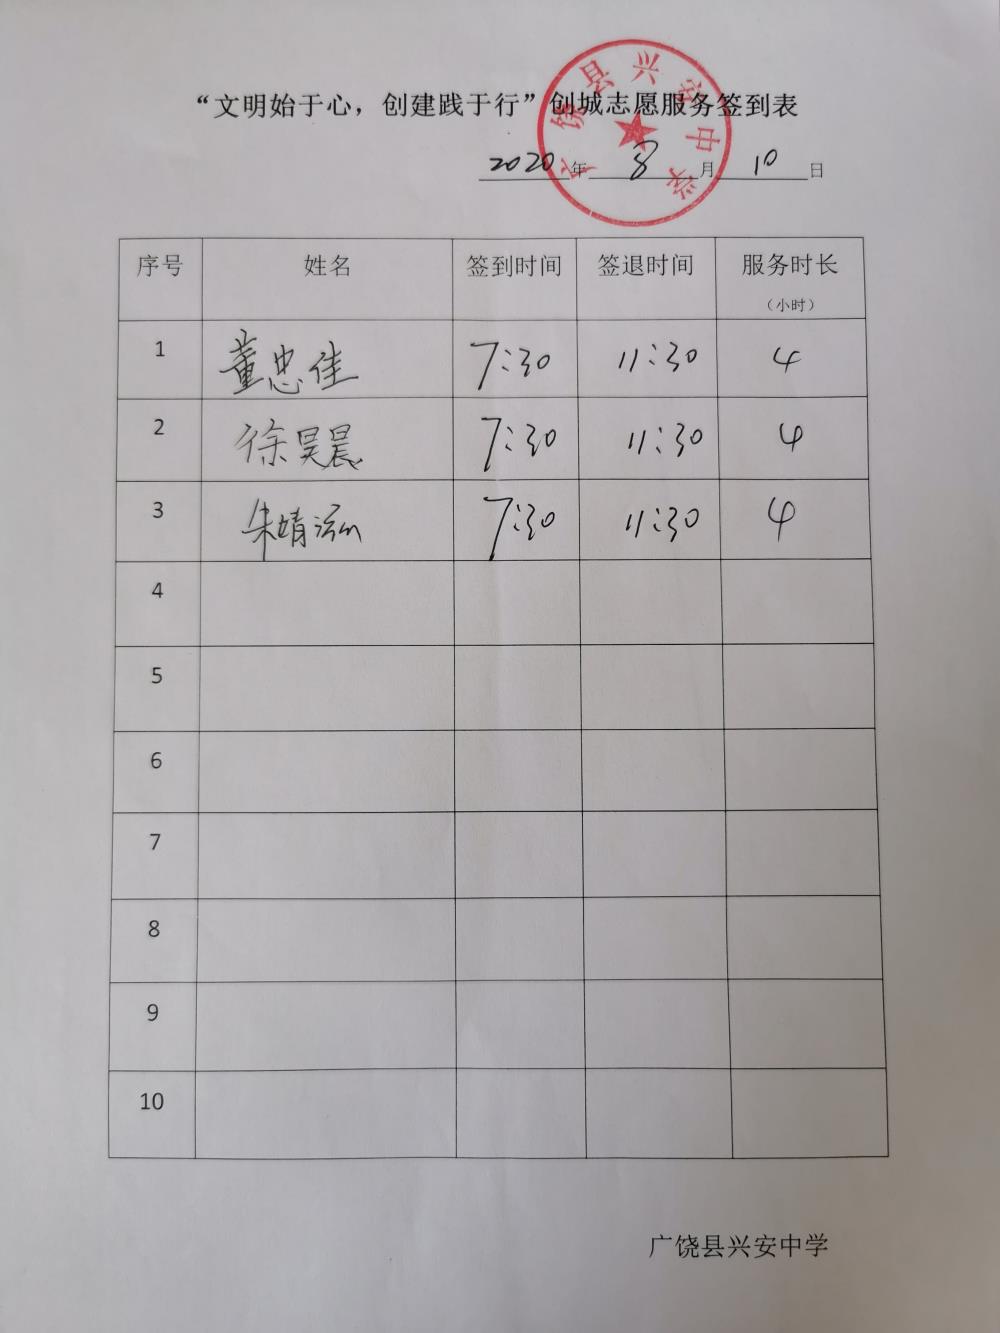 “文明始于心，创建践于行”创城志愿服务签到表
广饶县兴安中学
2020年8月10日
序号 姓名 签到时间 签退时间 服务时长
（小时）
1 董忠佳 7:30 11:30 4
2 徐昊晨 7:30 11:30 4
3 朱靖泓 7:30 11:30 4
4
5
6
7
8
9
10
广饶县兴安中学